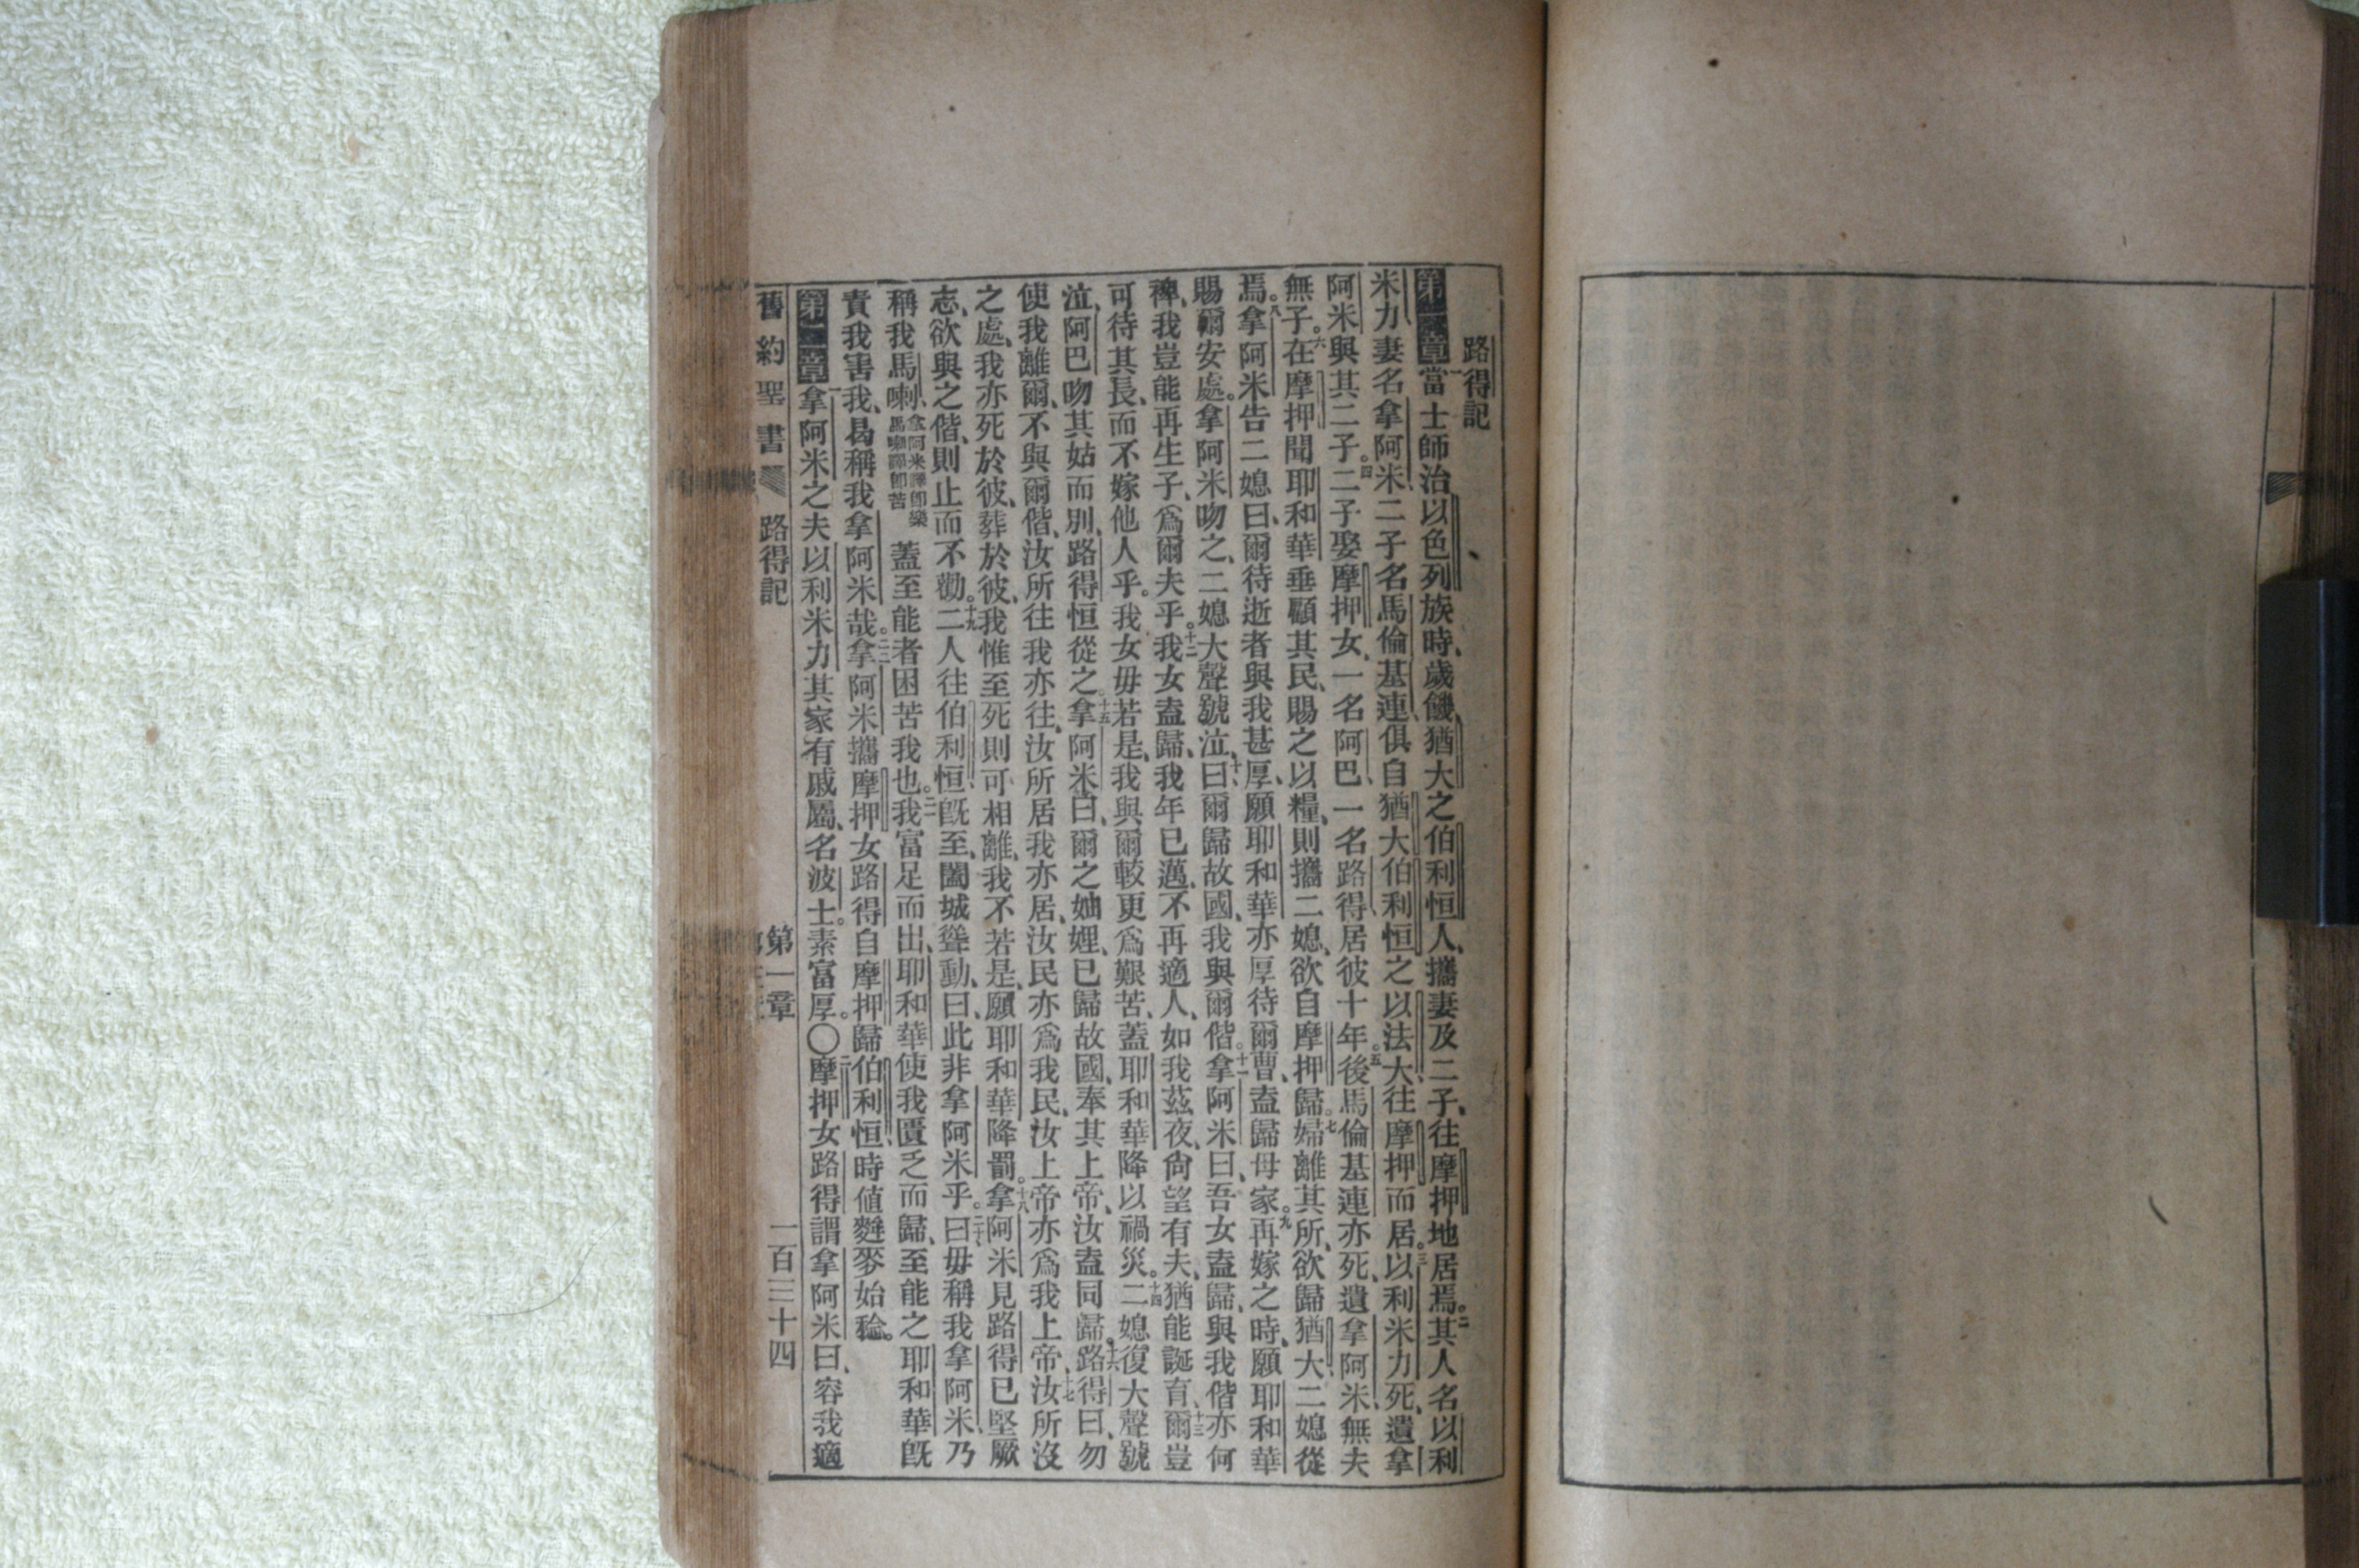 路得記
第一章一當士師治以色列族時、歲饑、猶大之伯利恒人、攜妻及二子、往摩押地居焉。二其人名以利
米力、妻名拿阿米、二子名馬倫、基連、俱自猶大伯利恒之以法大、往摩押而居。三以利米力死、遺拿
阿米與其二子。四二子娶摩押女、一名阿巴、一名路得、居彼十年。五後馬倫基連亦死、遺拿阿米無夫
無子。六在摩押聞耶和華垂顧其民、賜之以糧、則攜二媳、欲自摩押歸。七婦離其所、欲歸猶大、二媳從
焉。八拿阿米告二媳曰、爾待逝者與我甚厚、願耶和華亦厚待爾曹、盍歸母家。九再嫁之時、願耶和華
賜爾安處。拿阿米吻之、二媳大聲號泣、十曰、爾歸故國、我與爾偕。十一拿阿米曰、吾女盍歸、與我偕亦何
裨、我豈能再生子、爲爾夫乎。十二我女盍歸、我年已邁、不再適人、如我茲夜、尙望有夫、猶能誕育、十三爾豈
可待其長、而不嫁他人乎。我女毋若是、我與爾較更爲艱苦、蓋耶和華降以禍災。十四二媳復大聲號
泣、阿巴吻其姑而別、路得恒從之。十五拿阿米曰、爾之妯娌、已歸故國、奉其上帝、汝盍同歸。十六路得曰、勿
使我離爾、不與爾偕、汝所往我亦往、汝所居我亦居、汝民亦爲我民、汝上帝亦爲我上帝、十七汝所沒
之處、我亦死於彼、葬於彼、我惟至死則可相離、我不若是、願耶和華降罰。十八拿阿米見路得已堅厥
志、欲與之偕、則止而不勸。十九二人往伯利恒、旣至、闔城聳動、曰、此非拿阿米乎。二十曰、毋稱我拿阿米、乃
稱我馬喇、拿阿米譯卽樂馬喇譯卽苦蓋至能者困苦我也。二一我富足而出、耶和華使我匱乏而歸、至能之耶和華旣
責我害我、曷稱我拿阿米哉。二二拿阿米攜摩押女路得自摩押歸伯利恒、時値麰麥始稔。
第二章一拿阿米之夫以利米力其家有戚屬、名波士。素富厚。〇二摩押女路得謂拿阿米曰、容我適
舊約聖書 路得記 第一章 一百三十四